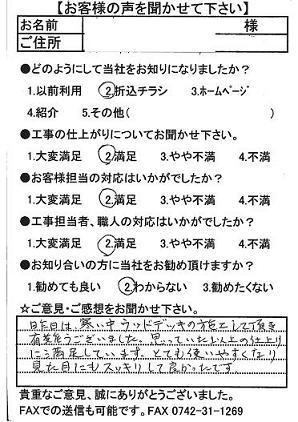 【お客様の声を聞かせて下さい】
お名前 様
ご住所
●どのようにして当社をお知りになりましたか？
1.以前利用 2.折込チラシ 3.ホームページ
4.紹介 5.その他( )
●工事の仕上がりについてお聞かせ下さい。
1.大変満足 2.満足 3.やや不満 4.不満
●お客様担当の対応はいかがでしたか？
1.大変満足 2.満足 3.やや不満 4.不満
●工事担当者、職人の対応はいかがでしたか？
1.大変満足 2.満足 3.やや不満 4.不満
●お知り合いの方に当社をお勧め頂けますか？
1.勧めても良い 2.わからない 3.勧めたくない
☆ご意見・ご感想をお聞かせ下さい。
昨日は、寒い中ウッドデッキの施工して頂き
有難うございました。思っていた以上の仕上り
に満足しています。とても使いやすくなり
見た目にもスッキリして良かったです
貴重なご意見、誠にありがとうございました。
FAXでの送信も可能です。FAX 0742-31-1269